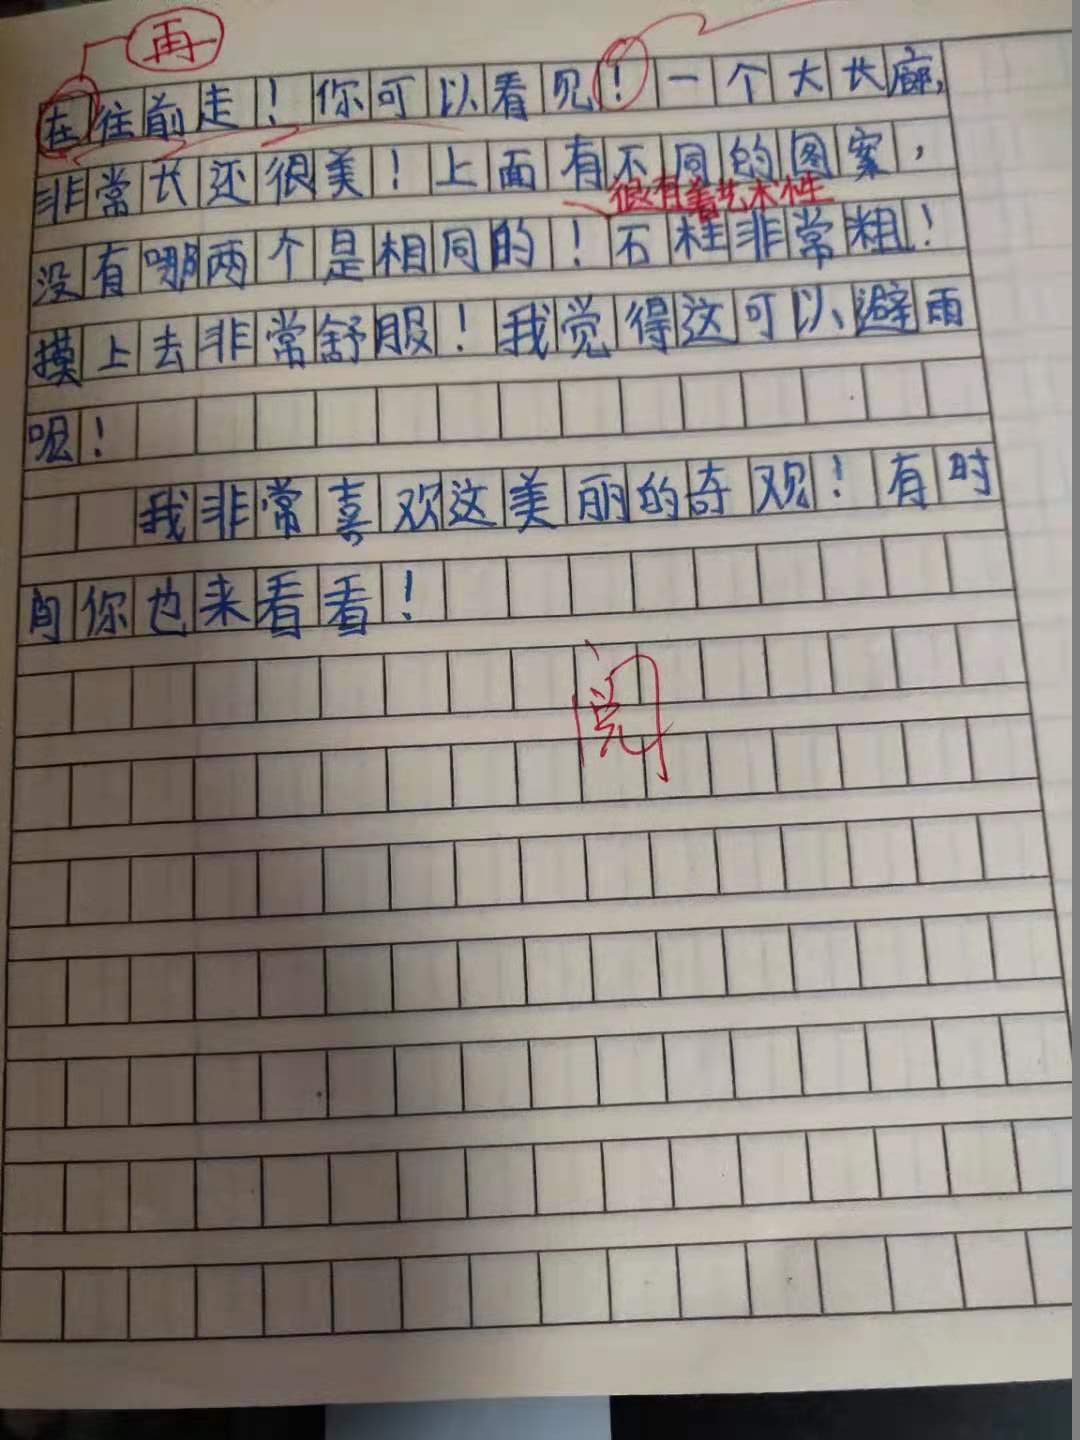 再
在往前走！你可以看见！一个大长廊，
非常长还很美！上面有不同的图案，
很有着艺术性
没有哪两个是相同的！石柱非常粗！
摸上去非常舒服！我觉得这可以避雨
呢！
我非常喜欢这美丽的奇观！有时
间你也来看看！
阅